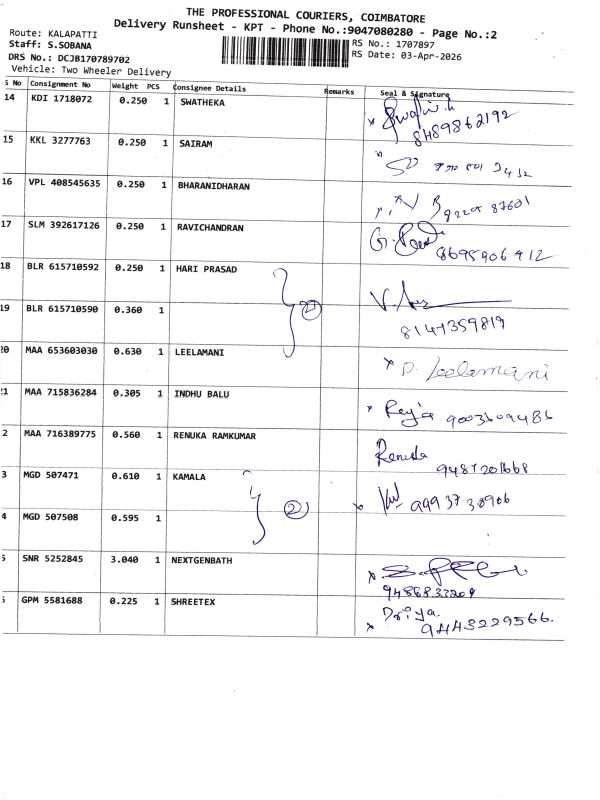 THE PROFESSIONAL COURIERS, COIMBATORE
Delivery Runsheet - KPT - Phone No.:9047080280 - Page No.:2
Route: KALAPATTI
Staff: S.SOBANA
DRS No.: DCJB170789702
Vehicle: Two Wheeler Delivery
RS No.: 1707897
RS Date: 03-Apr-2026
S No Consignment No Weight PCS Consignee Details Remarks Seal & Signature
14 KDI 1718072 0.250 1 SWATHEKA
8489862192
15 KKL 3277763 0.250 1 SAIRAM
16 VPL 408545635 0.250 1 BHARANIDHARAN
17 SLM 392617126 0.250 1 RAVICHANDRAN
8695906912
18 BLR 615710592 0.250 1 HARI PRASAD
19 BLR 615710590 0.360 1
8147359819
20 MAA 653603030 0.630 1 LEELAMANI D. Leelamani
21 MAA 715836284 0.305 1 INDHU BALU
9003609486
2 MAA 716389775 0.560 1 RENUKA RAMKUMAR Renuka
9487201668
3 MGD 507471 0.610 1 KAMALA
4 MGD 507508 0.595 1 2
5 SNR 5252845 3.040 1 NEXTGENBATH
9486833209
GPM 5581688 0.225 1 SHREETEX Priya.
9443229566.